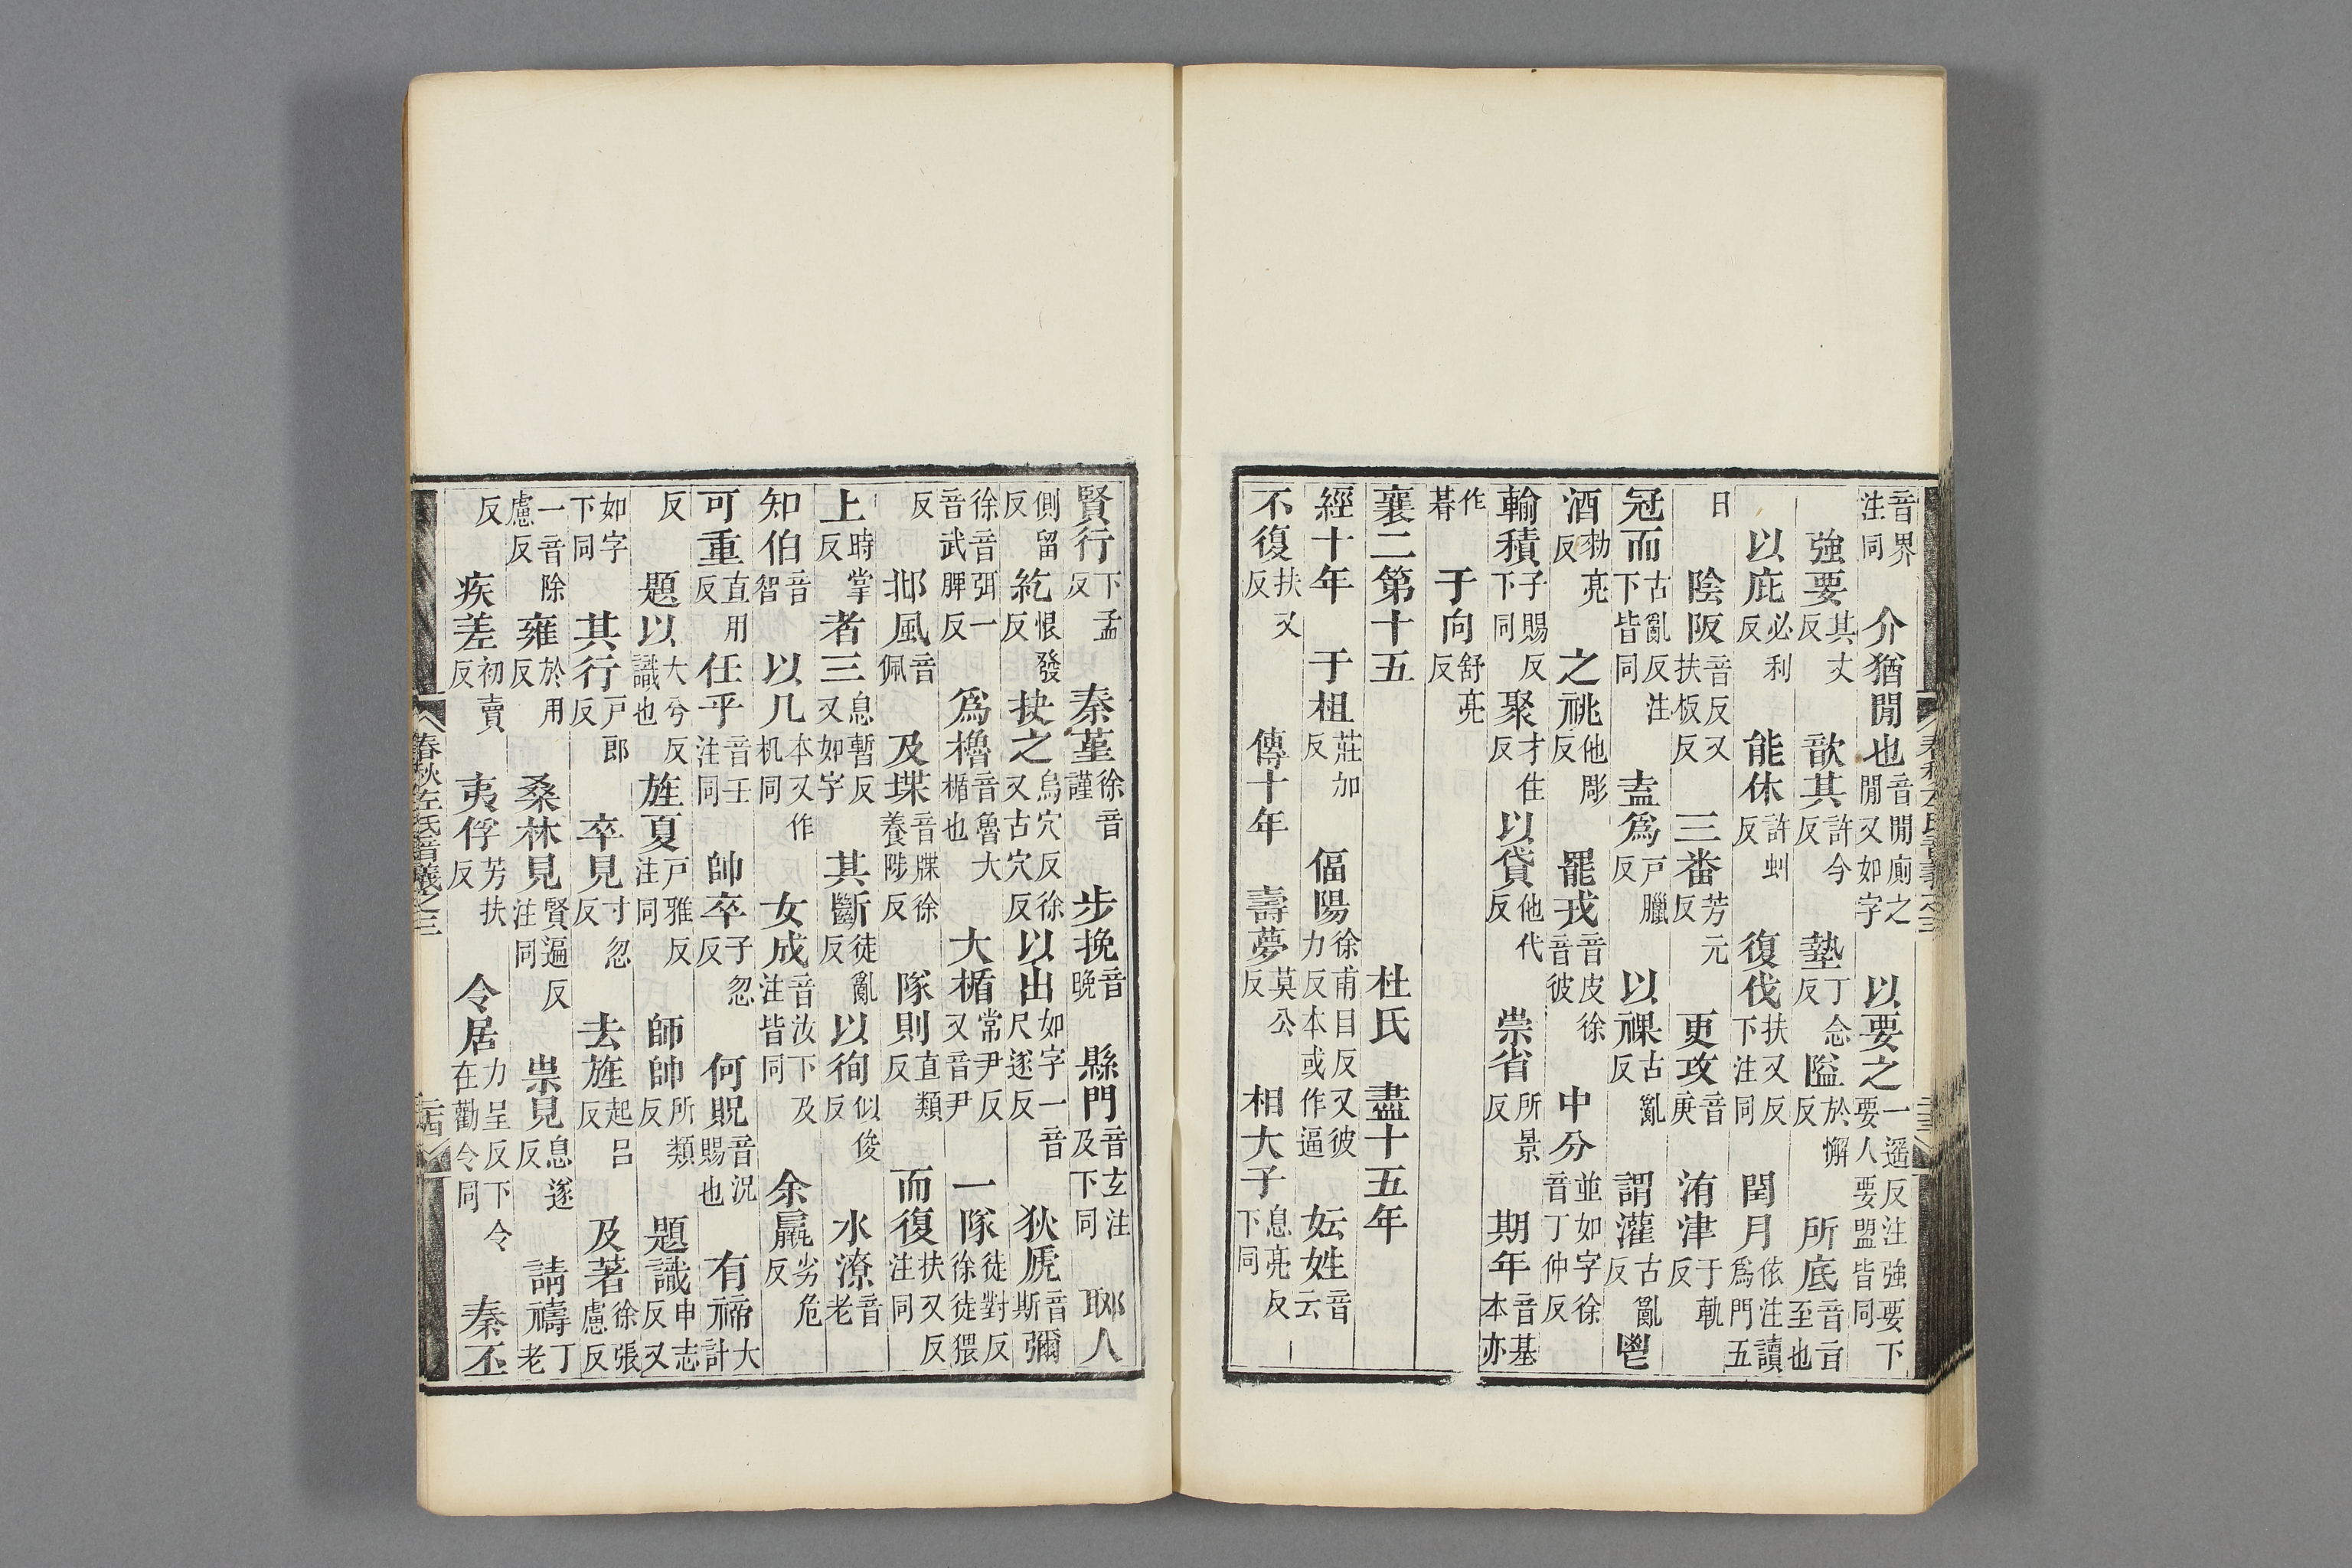 音界注同　介猶閒也音閒廁之閒又如字　以要之一遥反注強要下要人要盟皆同
強要其丈反　歆其許今反　墊丁念反　隘於懈反　所底音旨至也
以庇必利反　能休許虯反　復伐扶又反下注同　閏月依注讀爲門五
日　陰阪音反又扶板反　三番芳元反　更攻音庚　洧津于軌反
冠而古亂反注下皆同　盍爲戶臘反　以祼古亂反　謂灌古亂反　鬯
酒勑亮反　之祧他彫反　罷戎音皮徐音彼　中分並如字徐音丁仲反
輸積子賜反下同　聚才住反　以貸他代反　崇省所景反　期年音基本亦
作朞　于向舒亮反
襄二第十五　杜氏　盡十五年
經十年　于柤莊加反　偪陽徐甫目反又彼力反本或作逼　妘姓音云
不復扶又反　傳十年　壽夢莫公反　相大子息亮反下同
賢行下孟反　秦堇徐音謹　步挽音晚　縣門音玄注及下同　郰人
側留反　紇恨發反　抉之烏穴反徐又古穴反　以出如字一音尺遂反　狄虒彌音斯
徐音弭一音武脾反　爲櫓音魯大楯也　大楯常尹反又音尹　一隊徒對反徐徒猥
反　邶風音佩　及堞音牒徐養陟反　隊則直類反　而復扶又反注同
上時掌反　者三息暫反又如字　其斷徒亂反　以徇似俊反　水潦音老
知伯音智　以几本又作机同　女成音汝下及注皆同　余羸劣危反
可重直用反　任乎音壬注同　帥卒子忽反　何貺音況賜也　有禘大計
反　題以大兮反識也　旌夏戶雅反注同　師帥所類反　題識申志反又
如字下同　其行戶郎反　卒見寸忽反　去旌起呂反　及著徐張慮反
一音除慮反　雍於用反　桑林見賢遍反注同　祟見息遂反　請禱丁老
反　疾差初賣反　夷俘芳扶反　令居力呈反下令在勸令同　秦丕
春秋左氏音義之三